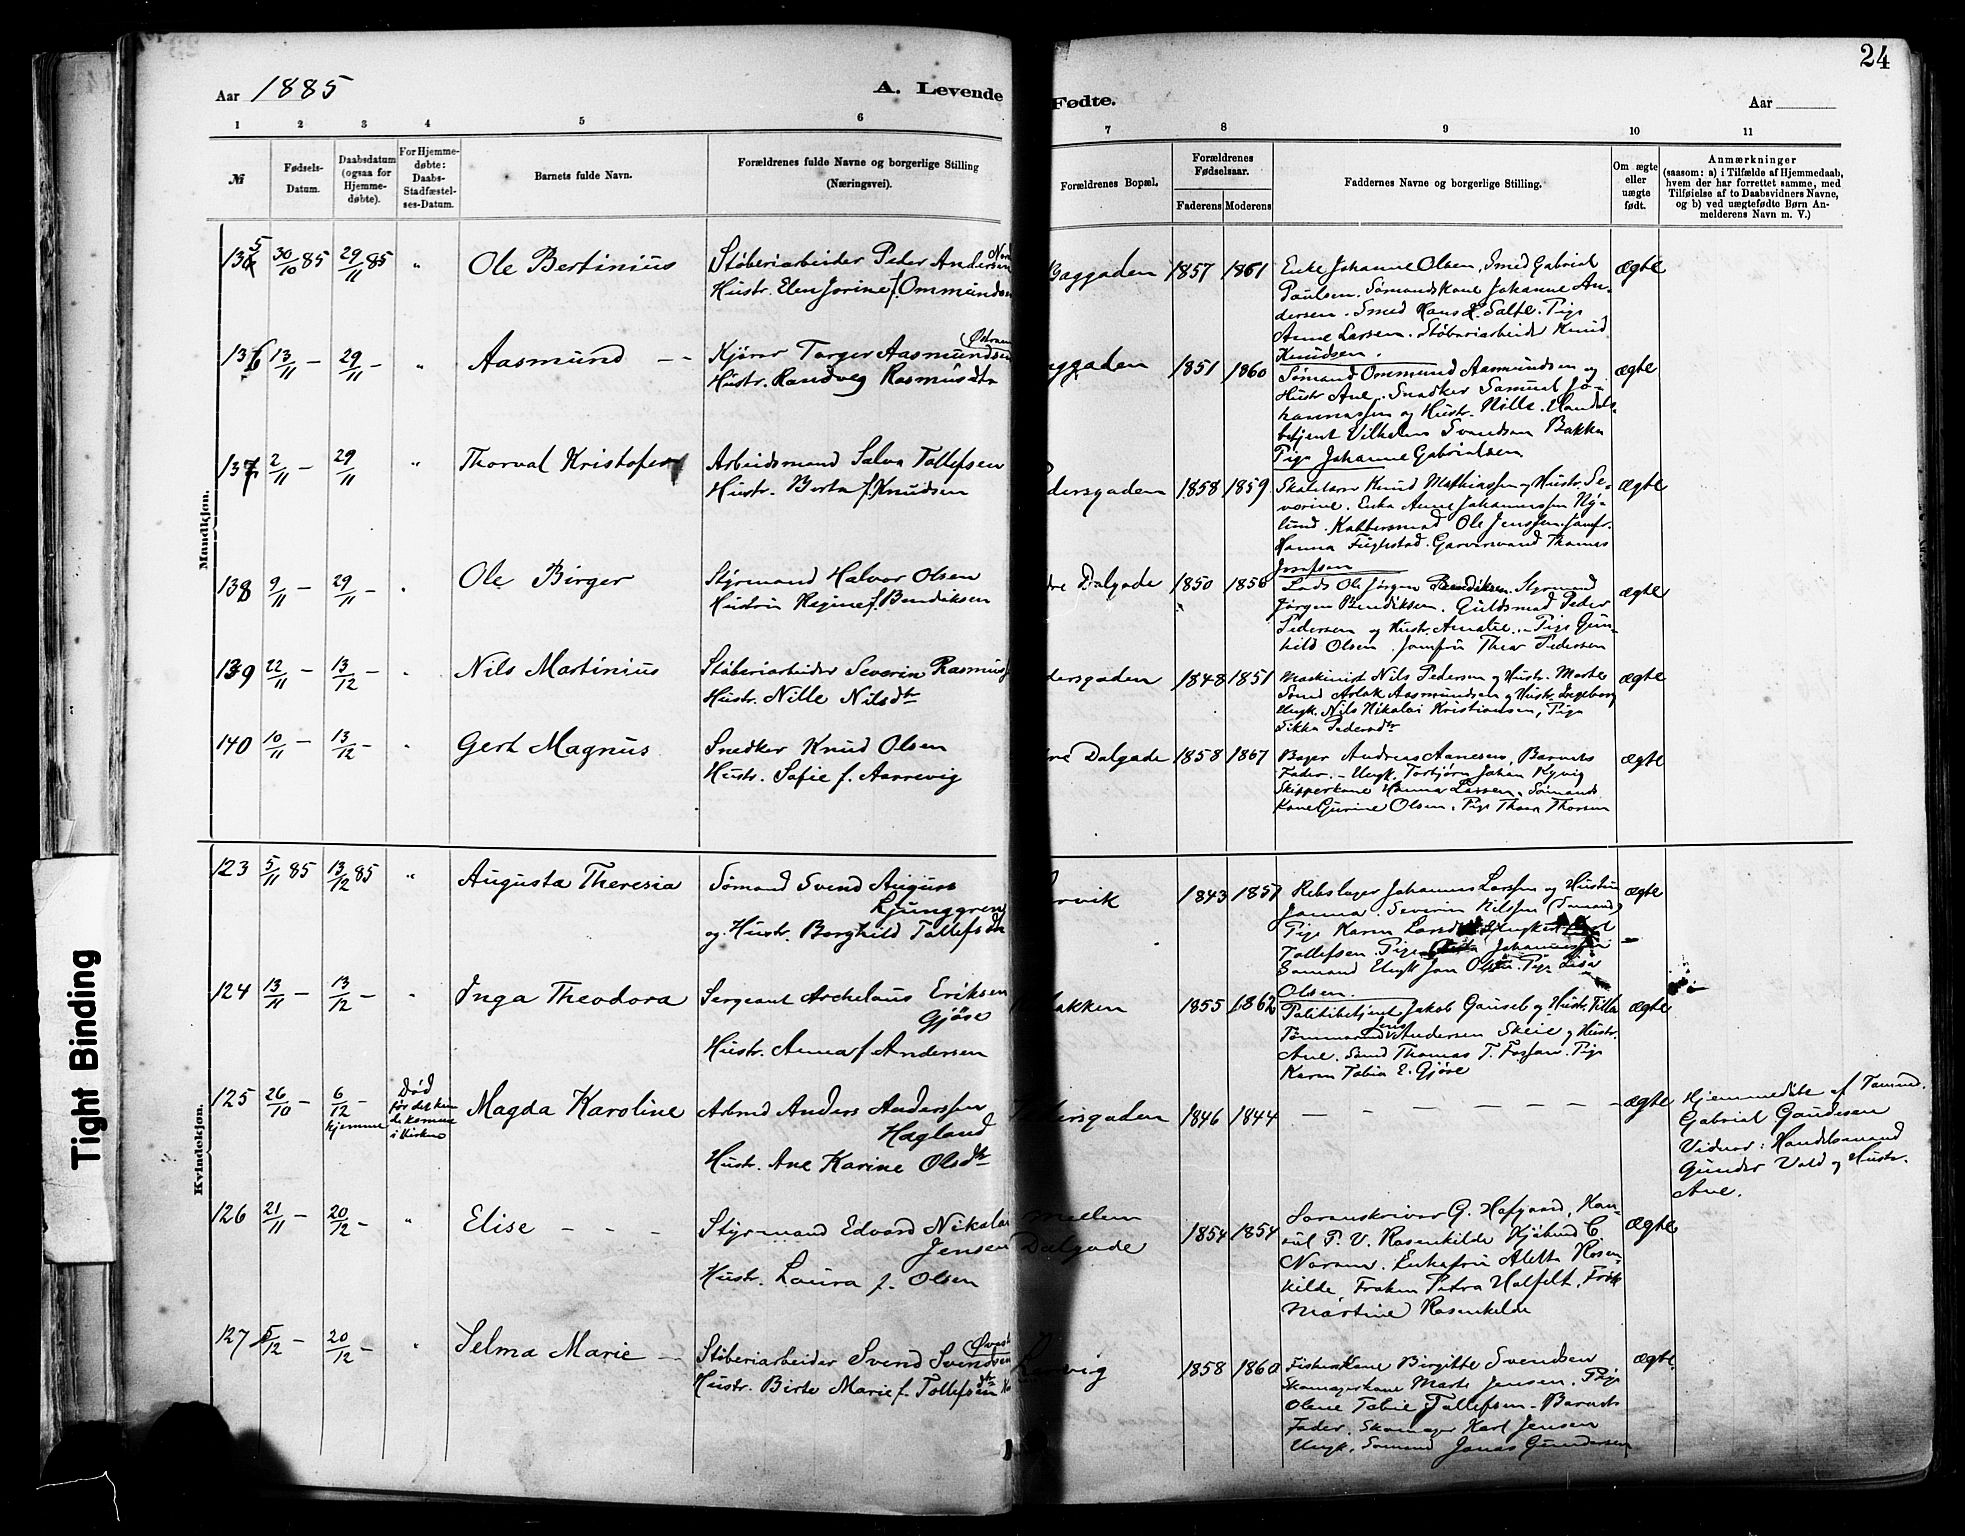 24
Aar 1885
A. Levende
Fødte.
Aar
1 2 3 4 5 6 7 8 9 10 11
№
Fødsels-
Datum.
Daabsdatum
(ogsaa for
Hjemme-
døbte).
For Hjemme-
døbte:
Daabs-
Stadfæstel-
ses-Datum.
Barnets fulde Navn.
Forældrenes fulde Navne og borgerlige Stilling
(Næringsvei).
Forældrenes Bopæl.
Forældrenes
Fødselsaar.
Faderens Moderens
Faddernes Navne og borgerlige Stilling.
Om ægte
eller
uægte
født.
Anmærkninger
(saasom: a) i Tilfælde af Hjemmedaab,
hvem der har forrettet samme, med
Tilføielse af to Daabsvidners Navne,
og b) ved uægtefødte Børn An-
melderens Navn m. V.)
Mandkjøn.
135 30/10 85 29/11 85 " Ole Bertinius
Støberiarbeider Peder Andersen
Hustr. Elen Jorine f. Ommundsen
Baggaden 1857 1861
Enke Johanne Olsen, Smed Gabriel
Paulsen. Sømandskone Johanne An-
dersen. Smed Hans L. Salte. Pige
Anne Larsen. Støberiarbeider Knud
Knudsen.
ægte
136 13/11 — 29/11 — " Aasmund — -
Kjører Torger Aasmundsen
Hustr. Randveg Rasmusdtr
ggaden 1851 1860
Sømand Ommund Aasmundsen og
Hustr Ane. Snedker Samuel Jo-
hannassen og Hustr. Nille. Handels-
betjent Vilhelm Svendsen Bakke
Pige Johanne Gabrielsen
ægte
137 2/11 — 29/11 " Thorval Kristofer
Arbeidsmand Salve Tollefsen
Hustr. Berta f. Knudsen
dersgaden 1858 1859
Knud Mathiassen og Hustr. Se-
verine. Enke Anne Johannessen Ny-
lund. Kobbersmed Ole Jenssen. Jomfr.
Hanna Fuglestad. Garversvend Thomas
Josefsen
ægte
138 9/11 — 29/11 — " Ole Birger
Styrmand Halvor Olsen
Hustru Regine f. Bendiksen
dre Dalgade 1850 1856
Lods Ole Jørgen Bendiksen. Styrmand
Jørgen Bendiksen. Guldsmed Peder
Pedersen og Hustr. Amalie. - Pige Gun-
hild Olsen. Jomfru Thea Pedersen
ægte
139 22/11 — 13/12 — " Nils Martinius
Støberiarbeider Severin Rasmus
Hustr. Nille Nilsdtr
dersgaden 1848 1851
Maskinist Nils Pedersen og Hustr. Marthe
Smed Aslak Aasmundsen og Hustr. Ingeborg
Ungk. Nils Nikolai Kristiansen, Pige
Sikka Pedersdtr
ægte
140 10/11 — 13/12 — " Gert Magnus
Snedker Knud Olsen
Hustr. Sofie f. Aarrevig
re Dalgade 1858 1867
Bager Andreas Aanesen, Barnets
Fader. - Ungk. Torbjørn Johan Kyvig
Skipperkone Hanna Larsen. Sømands
Kone Gurine Olsen. Pige Thora Thorsen
ægte
Kvindekjøn.
123 5/11 85 13/12 85 " Augusta Theresia
Sømand Svend August
Ljunggren
og Hustr. Borghild Tollefsdtr
rvik 1843 1857
Rebslager Johannes Larsen og Hustru
Janna. Severin Nilssen (Sømand)
Pige Karen
Tollefsen. Pige Johannessen
Sømand Ungk Jon Olsen. Pige Lisa
Olsen.
ægte
124 13/11 — 13/12 — " Inga Theodora
Sergeant Archelaus Eriksen
Gjöse
Hustr. Anna f. Andersen
akken 1855 1862
Politibetjent Jakob Gausel og Hustr. Tilla
Tømmermand Andersen Skeie og Hustr.
Ane. Smed Thomas T. Fossan. Pige
Karen Tobia E. Gjöse
ægte
125 26/10 — 6/12 — hjemme
Død
før det kun
de komme
i Kirken
Magda Karoline
Arbmd Anders Anderssen
Hagland
Hustr. Ane Karine Olsdtr
dersgaden 1846 1844
— — — — — — —
ægte
Hjemmedøbt af Tømmd.
Gabriel Gaudesen
Vidner: Handelsmand
Gunder Vold og Hustr.
Ane.
126 21/11 — 20/12 — " Elise - - -
Styrmand Edvard Nikolai
Jensen
Hustr. Laura f. Olsen
Mellem
Dalgade 1854 1854
Sorenskriver G. Hofgaard, Kon-
sul P. V. Rosenkilde Kjøbmd C.
Enkefru Aletta Rosen-
kilde, Frøken Petra Halfelt. Frøk
Martine Rosenkilde
ægte
127 5/12 — 20/12 — " Selma Marie —
Støberiarbeider Svend Svendsen
Hustr. Birte Marie f. Tollefsen
rvig 1858 1860
Fiskerkone Birgitte Svendsen
Skomagerkone Marte Jensen. Pige
Olene Tobie Tollefsen - Barnets
Fader. Skomager Karl Jensen
Ungk. Sømand Jonas Gundersen
ægte.
Tight Binding